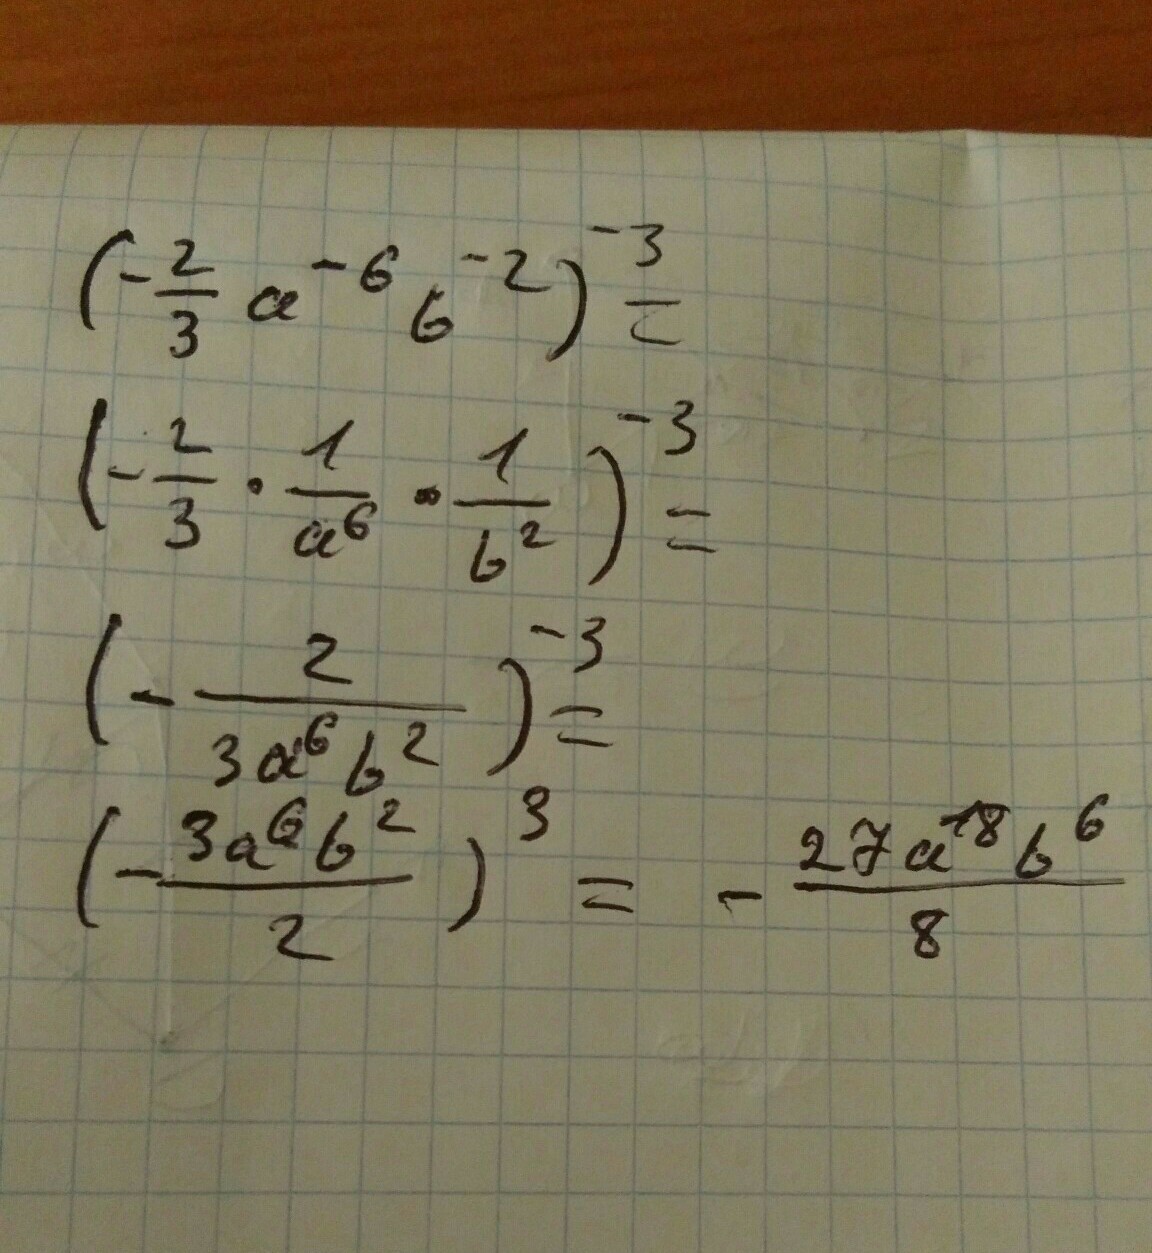 (-2/3 a^-6 b^-2)^-3 =
(-2/3 · 1/a^6 · 1/b^2)^-3 =
(- 2/3a^6b^2)^-3 =
(- 3a^6b^2/2)^3 = - 27a^18b^6/8